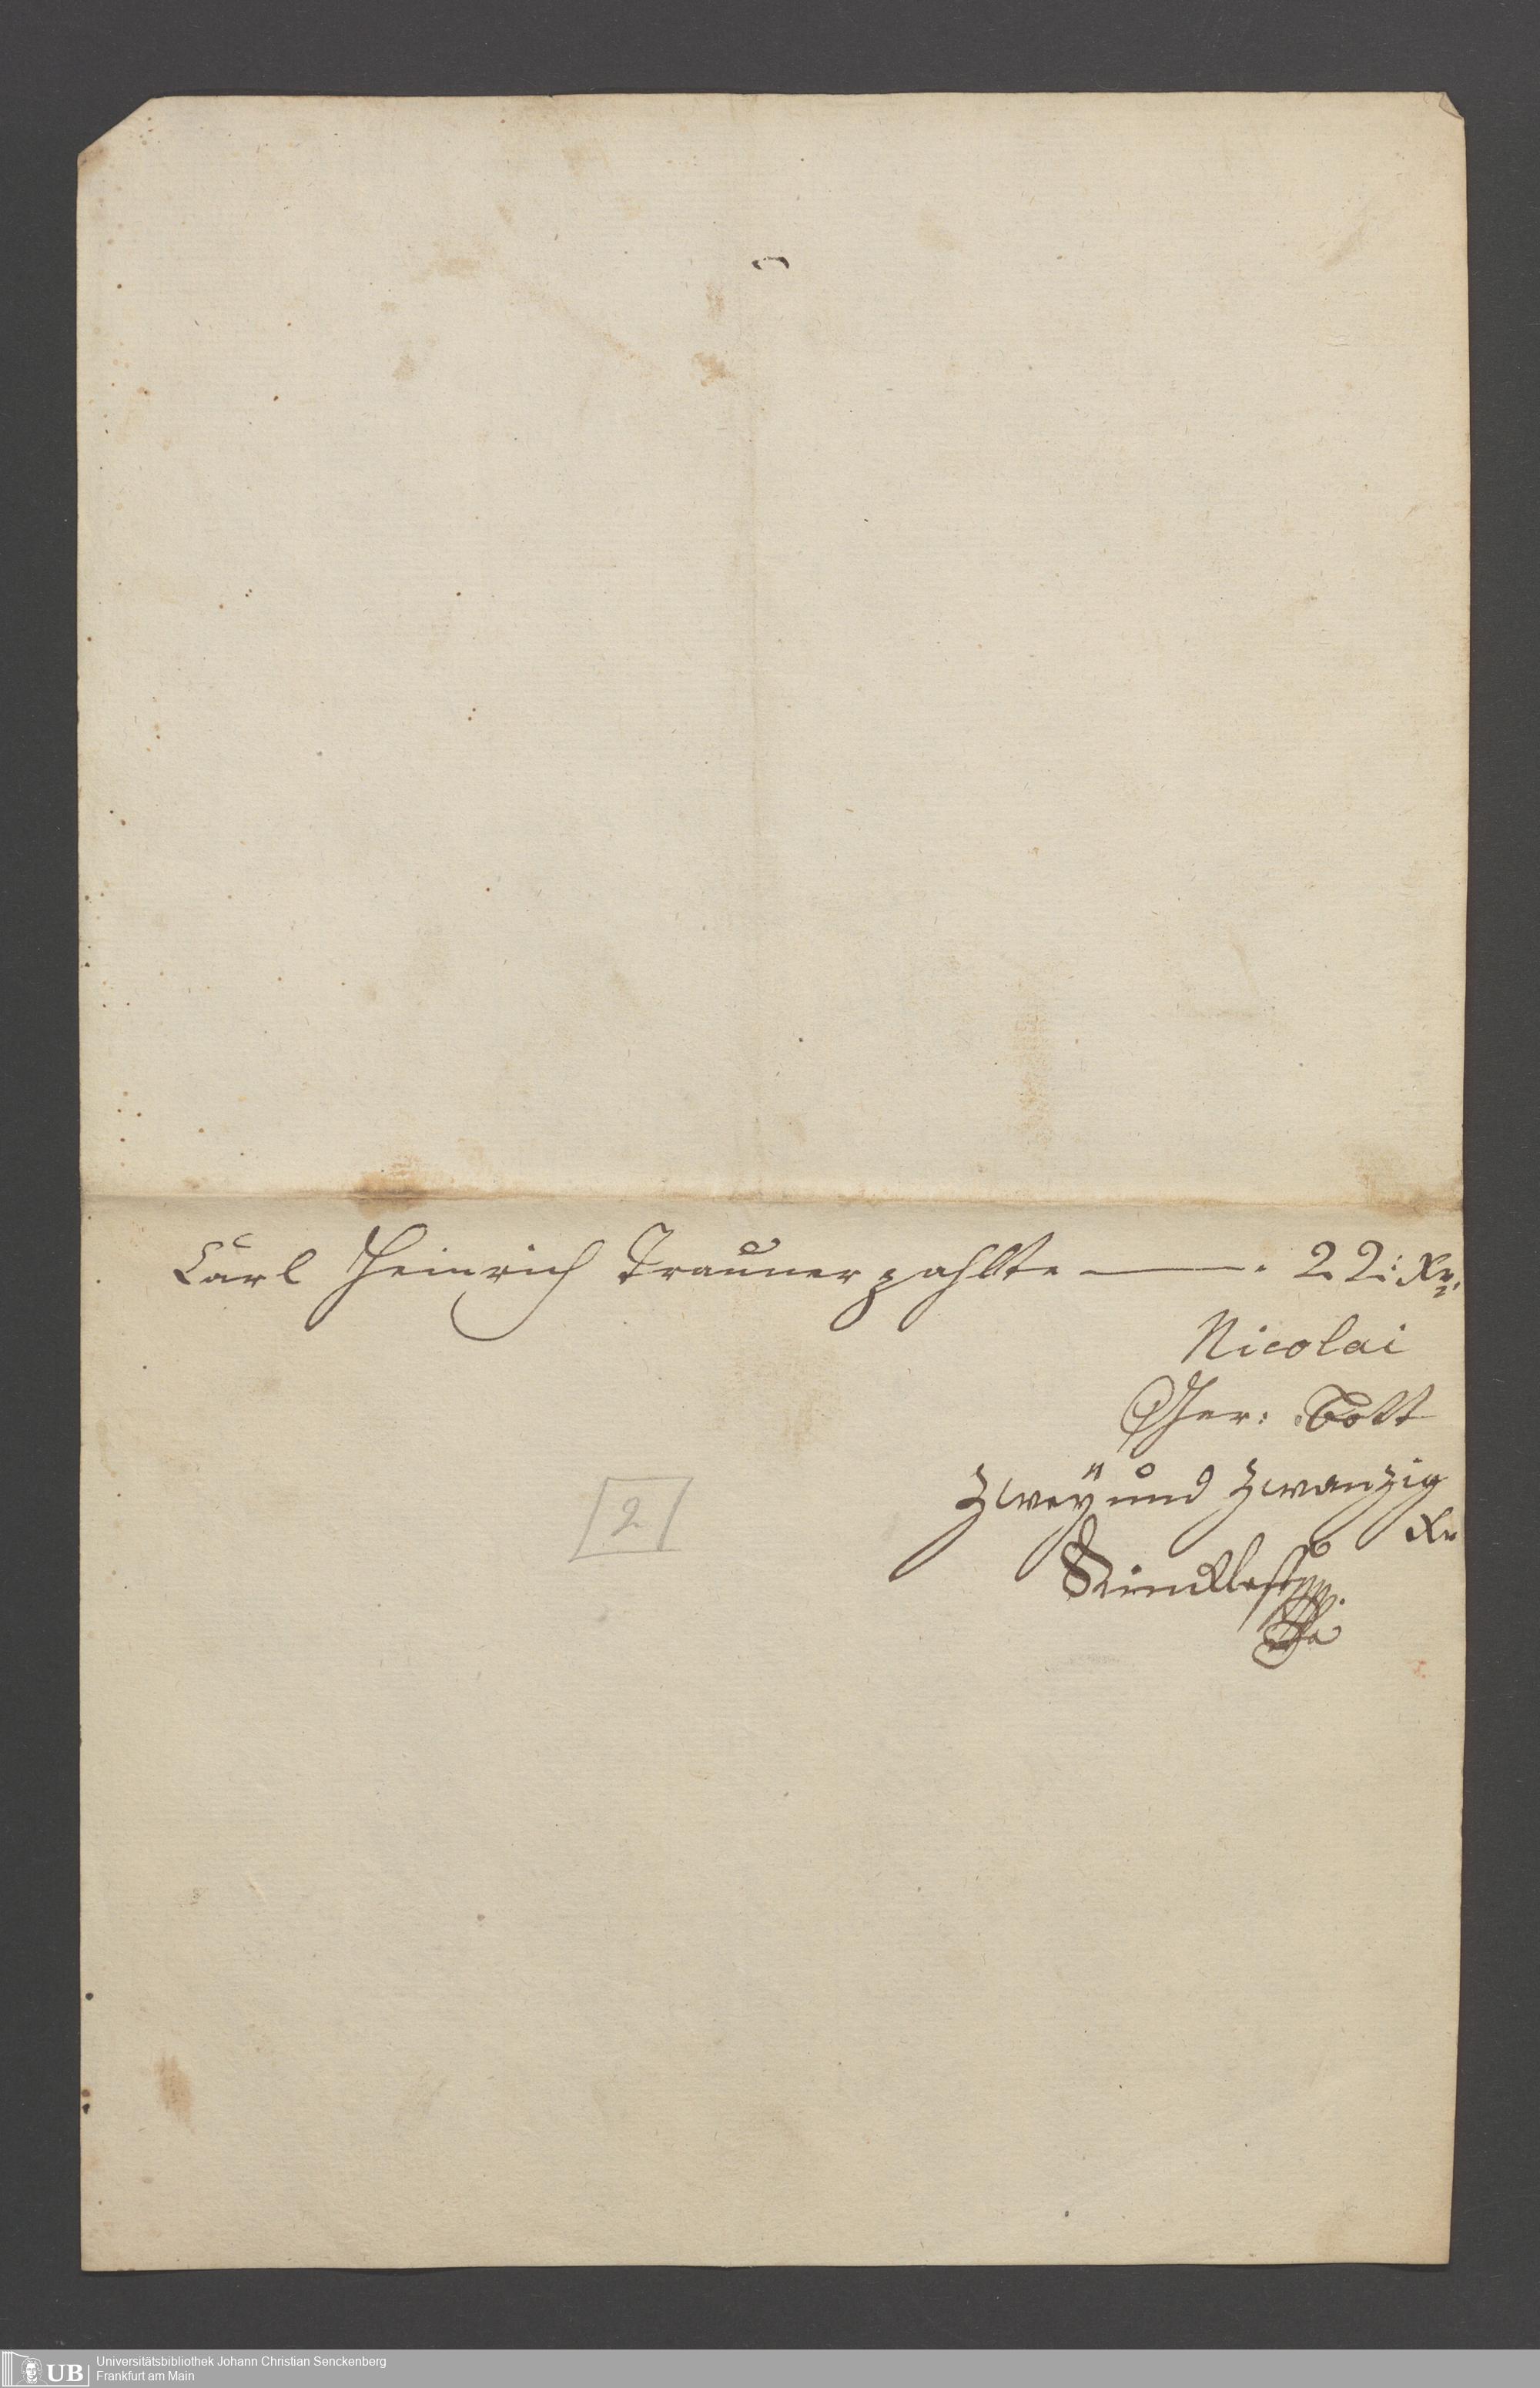 Carl Heinrich Trauner zahlte ——. 22: Xr.
Nicolai
Ger: Bott
Zweÿ und Zwanzig
Xr
2
UB Universitätsbibliothek Johann Christian Senckenberg
Frankfurt am Main